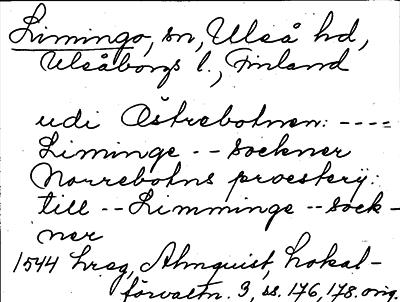 Limingo, sn, Ulså hd,
Ulsåborgs l., Finland
udi Östrebotnen: ----
Liminge -- sockner
Norrebotns proestery:
till -- Limminge -- sock-
ner
1544 hreg, Almquist, Lokal-
förvaltn. 3, ss. 176, 178. orig.